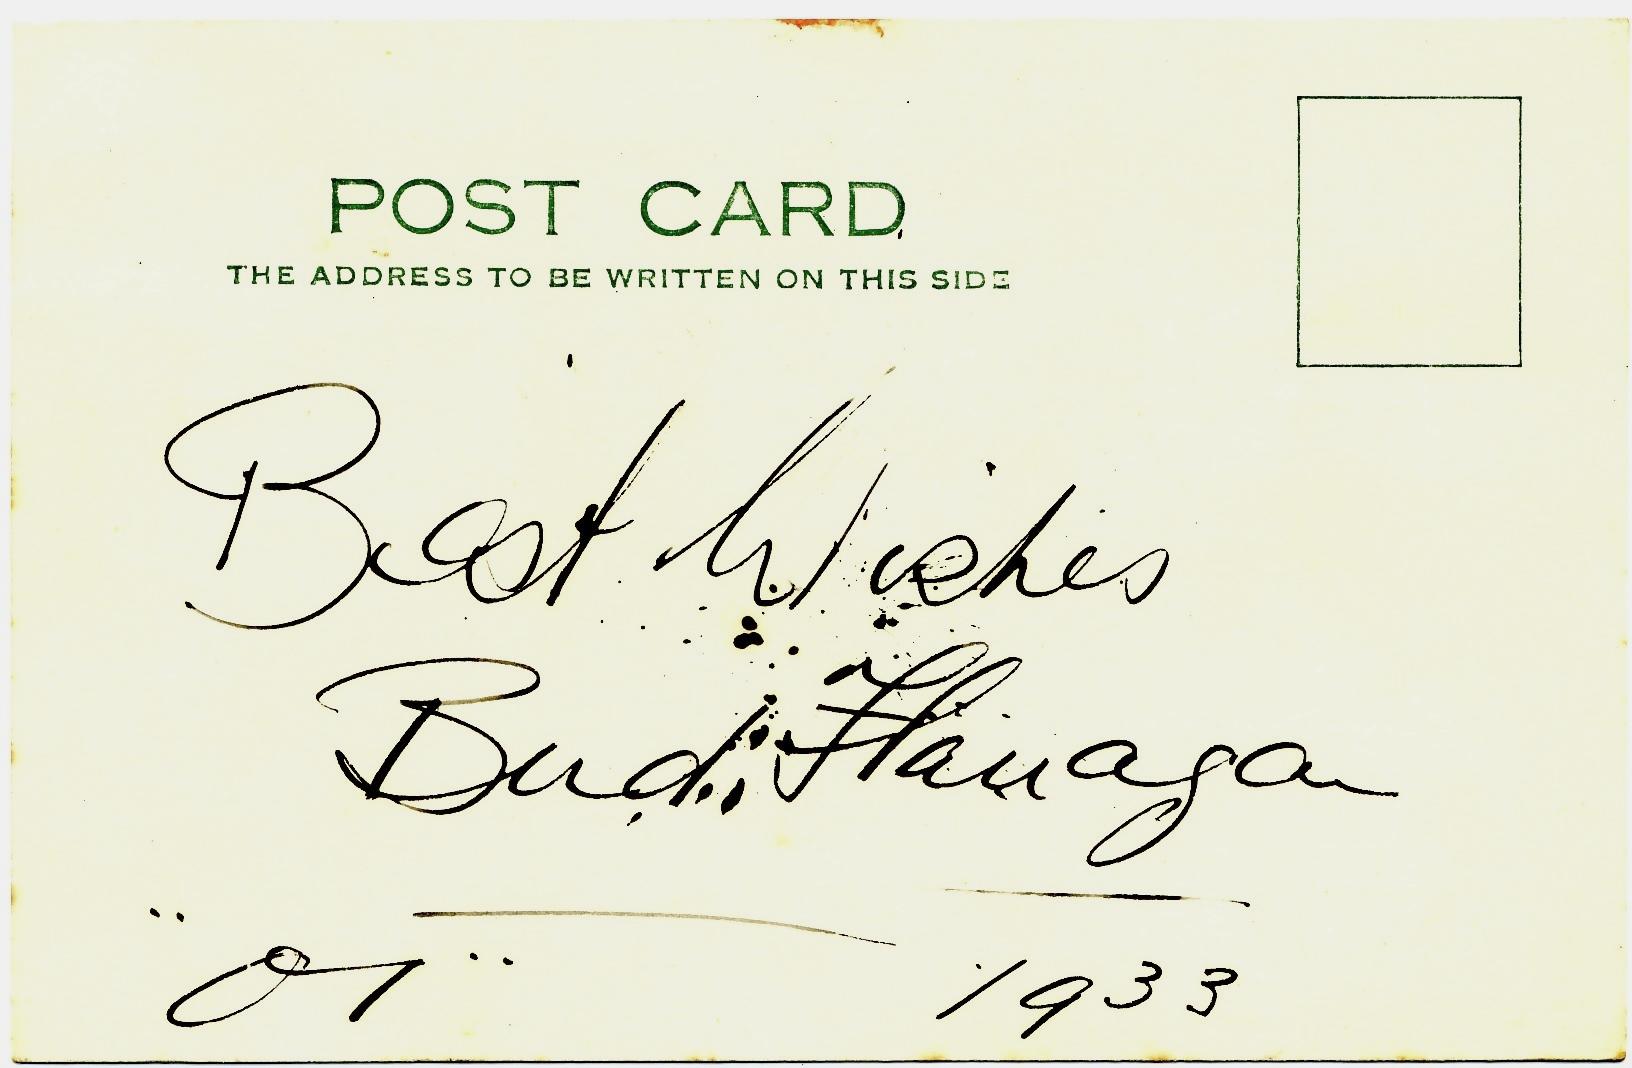 POST CARD
THE ADDRESS TO BE WRITTEN ON THIS SIDE
Best Wishes
Bud Flanagan
"Oi" 1933